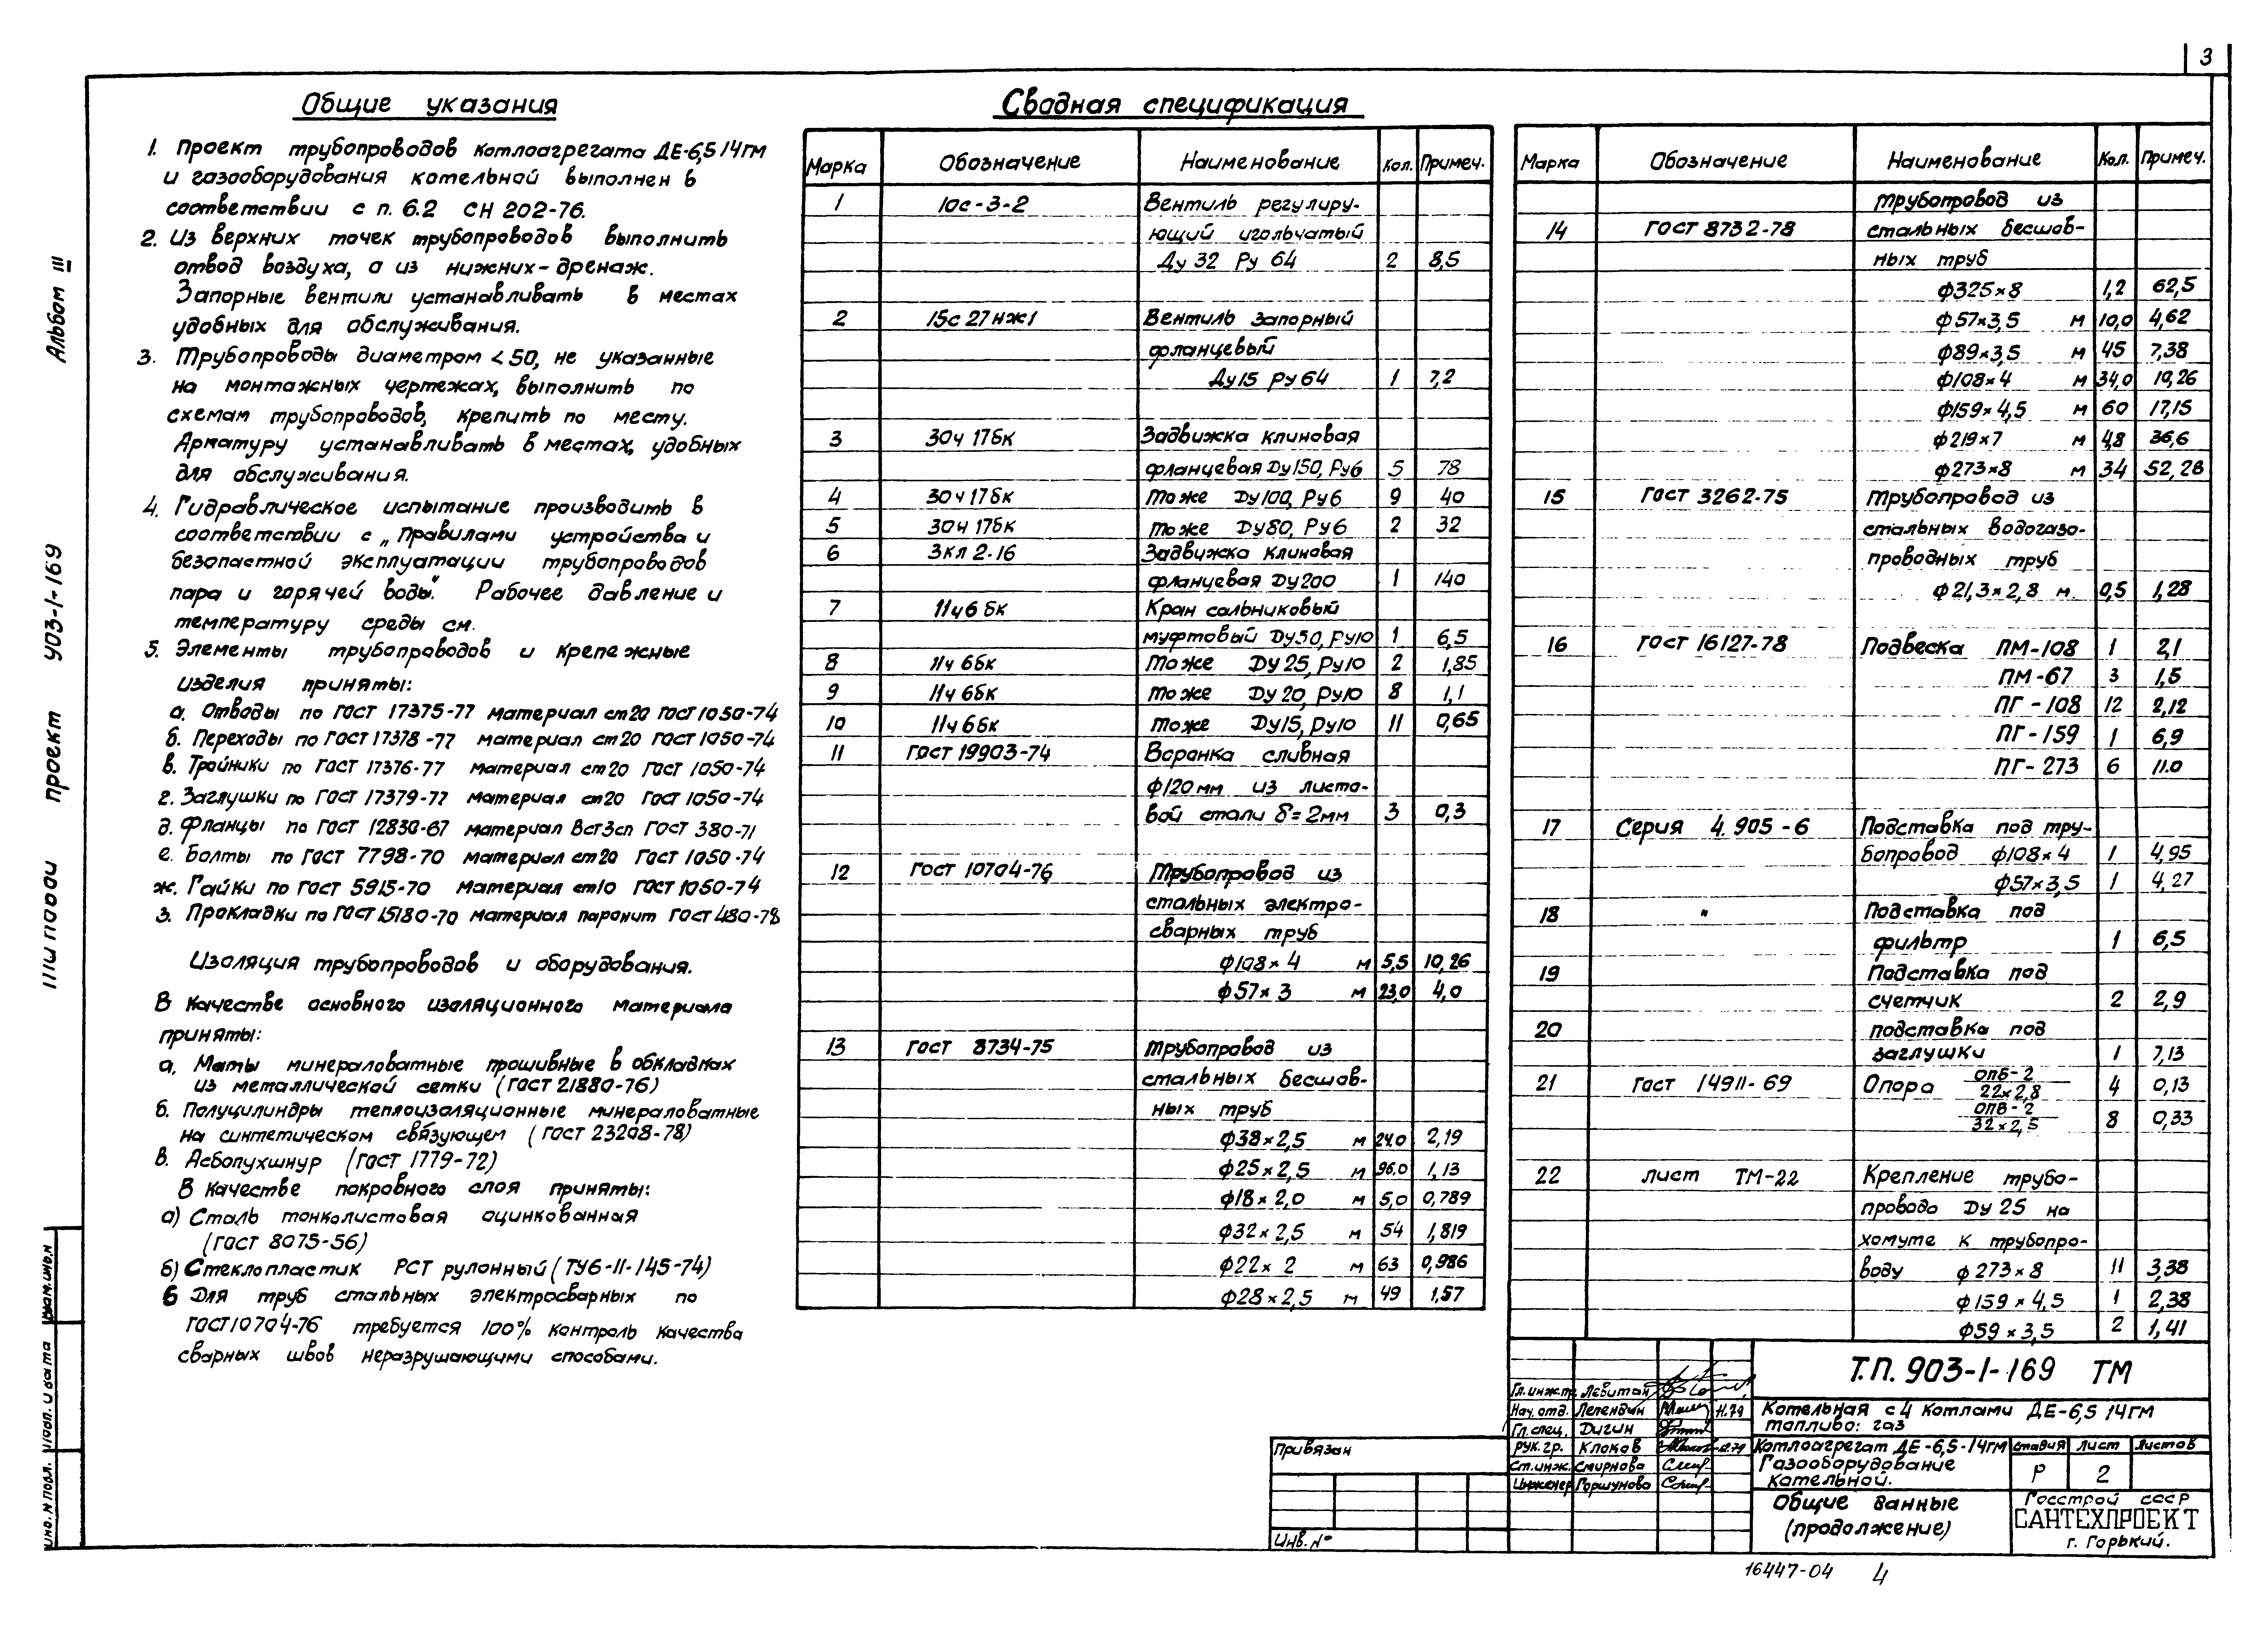 3
Общие указания
1. Проект трубопроводов котлоагрегата ДЕ-6,5/14ГМ
и газооборудования котельной выполнен в
соответствии с п. 6.2 СН 202-76.
2. Из верхних точек трубопроводов выполнить
отвод воздуха, а из нижних - дренаж.
Запорные вентили устанавливать в местах
удобных для обслуживания.
3. Трубопроводы диаметром < 50, не указанные
на монтажных чертежах, выполнить по
схемам трубопроводов, крепить по месту.
Арматуру устанавливать в местах, удобных
для обслуживания.
4. Гидравлическое испытание производить в
соответствии с „Правилами устройства и
безопастной эксплуатации трубопроводов
пара и горячей воды." Рабочее давление и
температуру среды см.
5. Элементы трубопроводов и крепежные
изделия приняты:
а. Отводы по ГОСТ 17375-77 материал ст20 ГОСТ 1050-74
б. Переходы по ГОСТ 17378-77 материал ст20 ГОСТ 1050-74
в. Тройники по ГОСТ 17376-77 материал ст20 ГОСТ 1050-74
г. Заглушки по ГОСТ 17379-77 материал ст20 ГОСТ 1050-74
д. Фланцы по ГОСТ 12830-67 материал Вст3сп ГОСТ 380-71
е. Болты по ГОСТ 7798-70 материал ст20 ГОСТ 1050-74
ж. Гайки по ГОСТ 5915-70 материал ст10 ГОСТ 1050-74
з. Прокладки по ГОСТ 15180-70 материал паронит ГОСТ 480-78
Изоляция трубопроводов и оборудования.
В качестве основного изоляционного материала
приняты:
а. Маты минераловатные прошивные в обкладках
из металлической сетки (ГОСТ 21880-76)
б. Полуцилиндры теплоизоляционные минераловатные
на синтетическом связующем (ГОСТ 23208-78)
в. Асбопухшнур (ГОСТ 1779-72)
В качестве покровного слоя приняты:
а) Сталь тонколистовая оцинкованная
(ГОСТ 8075-56)
б) Стеклопластик РСТ рулонный (ТУ6-11-145-74)
6 Для труб стальных электросварных по
ГОСТ 10704-76 требуется 100% контроль качества
сварных швов неразрушающими способами.
Сводная спецификация
Марка Обозначение Наименование Кол. Примеч.
1 10с-3-2 Вентиль регулиру-
ющий игольчатый
Ду 32 Ру 64 2 8,5
2 15с 27нж1 Вентиль запорный
фланцевый
Ду15 Ру 64 1 7,2
3 30ч 17бк Задвижка клиновая
фланцевая Ду150, Ру6 5 78
4 30ч 17бк То же Ду100, Ру6 9 40
5 30ч 17бк То же Ду80, Ру6 2 32
6 3кл 2-16 Задвижка клиновая
фланцевая Ду200 1 140
7 11ч6бк Кран сальниковый
муфтовый Ду50, Ру10 1 6,5
8 11ч 6бк То же Ду 25, Ру10 2 1,85
9 11ч 6бк То же Ду 20, Ру10 8 1,1
10 11ч 6бк То же Ду15, Ру10 11 0,65
11 ГОСТ 19903-74 Воронка сливная
ф120мм из листо-
вой стали δ=2мм 3 0,3
12 ГОСТ 10704-76 Трубопровод из
стальных электро-
сварных труб
ф108×4 м 5,5 10,26
ф57×3 м 23,0 4,0
13 ГОСТ 8734-75 Трубопровод из
стальных бесшов-
ных труб
ф38×2,5 м 24.0 2,19
ф25×2,5 м 96.0 1,13
ф18×2,0 м 5,0 0,789
ф32×2,5 м 54 1,819
ф22×2 м 63 0,986
ф28×2,5 м 49 1,57
Марка Обозначение Наименование Кол. Примеч.
Трубопровод из
14 ГОСТ 8732-78 стальных бесшов-
ных труб
ф325×8 1,2 62,5
ф57×3,5 м 10,0 4,62
ф89×3,5 м 45 7,38
ф108×4 м 34,0 10,26
ф159×4,5 м 60 17,15
ф219×7 м 4,8 36,6
ф273×8 м 34 52,28
15 ГОСТ 3262-75 Трубопровод из
стальных водогазо-
проводных труб
ф21,3×2,8 м. 0,5 1,28
16 ГОСТ 16127-78 Подвеска ПМ-108 1 2,1
ПМ-67 3 1,5
ПГ-108 12 2,12
ПГ-159 1 6,9
ПГ-273 6 11.0
17 Серия 4.905-6 Подставка под тру-
бопровод ф108×4 1 4,95
ф57×3,5 1 4,27
18 " Подставка под
фильтр 1 6,5
19 Подставка под
счетчик 2 2,9
20 подставка под
заглушки 1 7,13
21 ГОСТ 14911-69 Опора ОПБ-2
22×2,8 4 0,13
ОПБ-2
32×2,5 8 0,33
22 лист ТМ-22 Крепление трубо-
провода Ду 25 на
хомуте к трубопро-
воду ф273×8 11 3,38
ф159×4,5 1 2,38
ф59×3,5 2 1,41
Т.П. 903-1-169 ТМ
Гл. инж.пр. Левитан
Нач. отд. Лепендин 11.79
Гл. спец. Дигин
рук. гр. Клоков
Ст. инж. Смирнова
Инженер Горшунова
Котельная с 4 котлами ДЕ-6,5/14ГМ
топливо: газ
Котлоагрегат ДЕ-6,5-14ГМ
Газооборудование
котельной.
стадия лист листов
Р 2
Общие данные
(продолжение)
Госстрой СССР
САНТЕХПРОЕКТ
г. Горький.
Привязан
Инв. №
16447-04 4
Альбом III
проект 903-1-169
Взам.инв.н
Подп. и дата
инв. N подл.